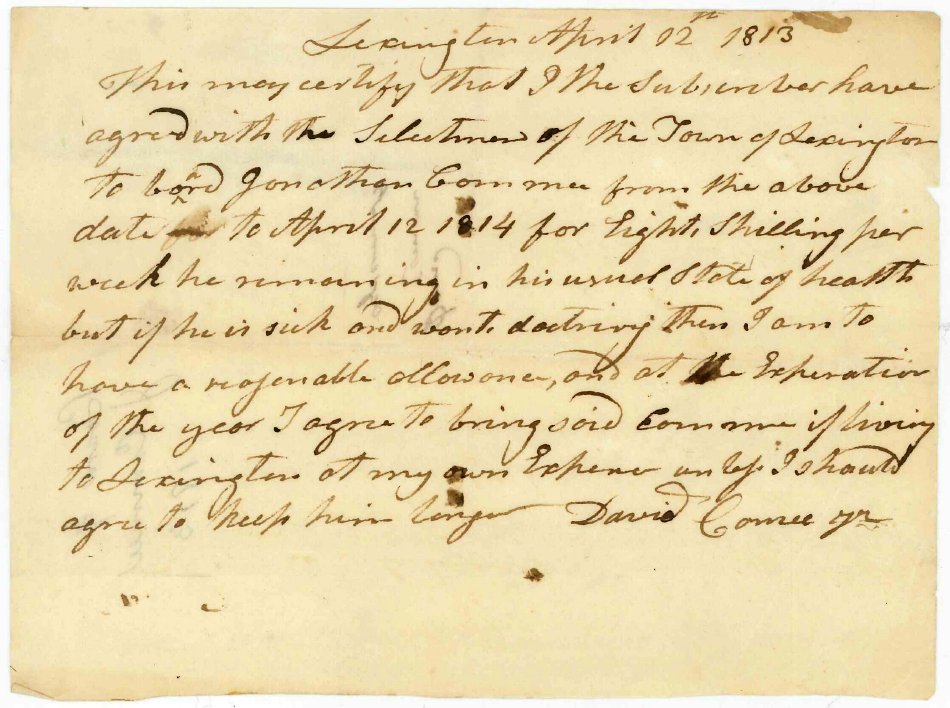 Lexington April 12th 1813
This may certify that I the Subscriber have
agred with the Selectmen of the Town of Lexington
to board Jonathan Commee from the above
date to April 12 1814 for Eight Shilling per
week he remaining in his usuel State of health
but if he is sick and wants doctring then I am to
have a reasenable allowance, and at the Experation
of the year I agree to bring said Commee if living
to Lexington at my own Expence unless I should
agree to keep him longer David Comee Jr